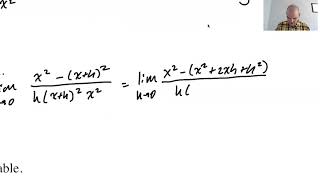 x²
lim h→0 (x² - (x+h)²) / (h(x+h)² x²) = lim h→0 (x² - (x² + 2xh + h²)) / (h(
able.